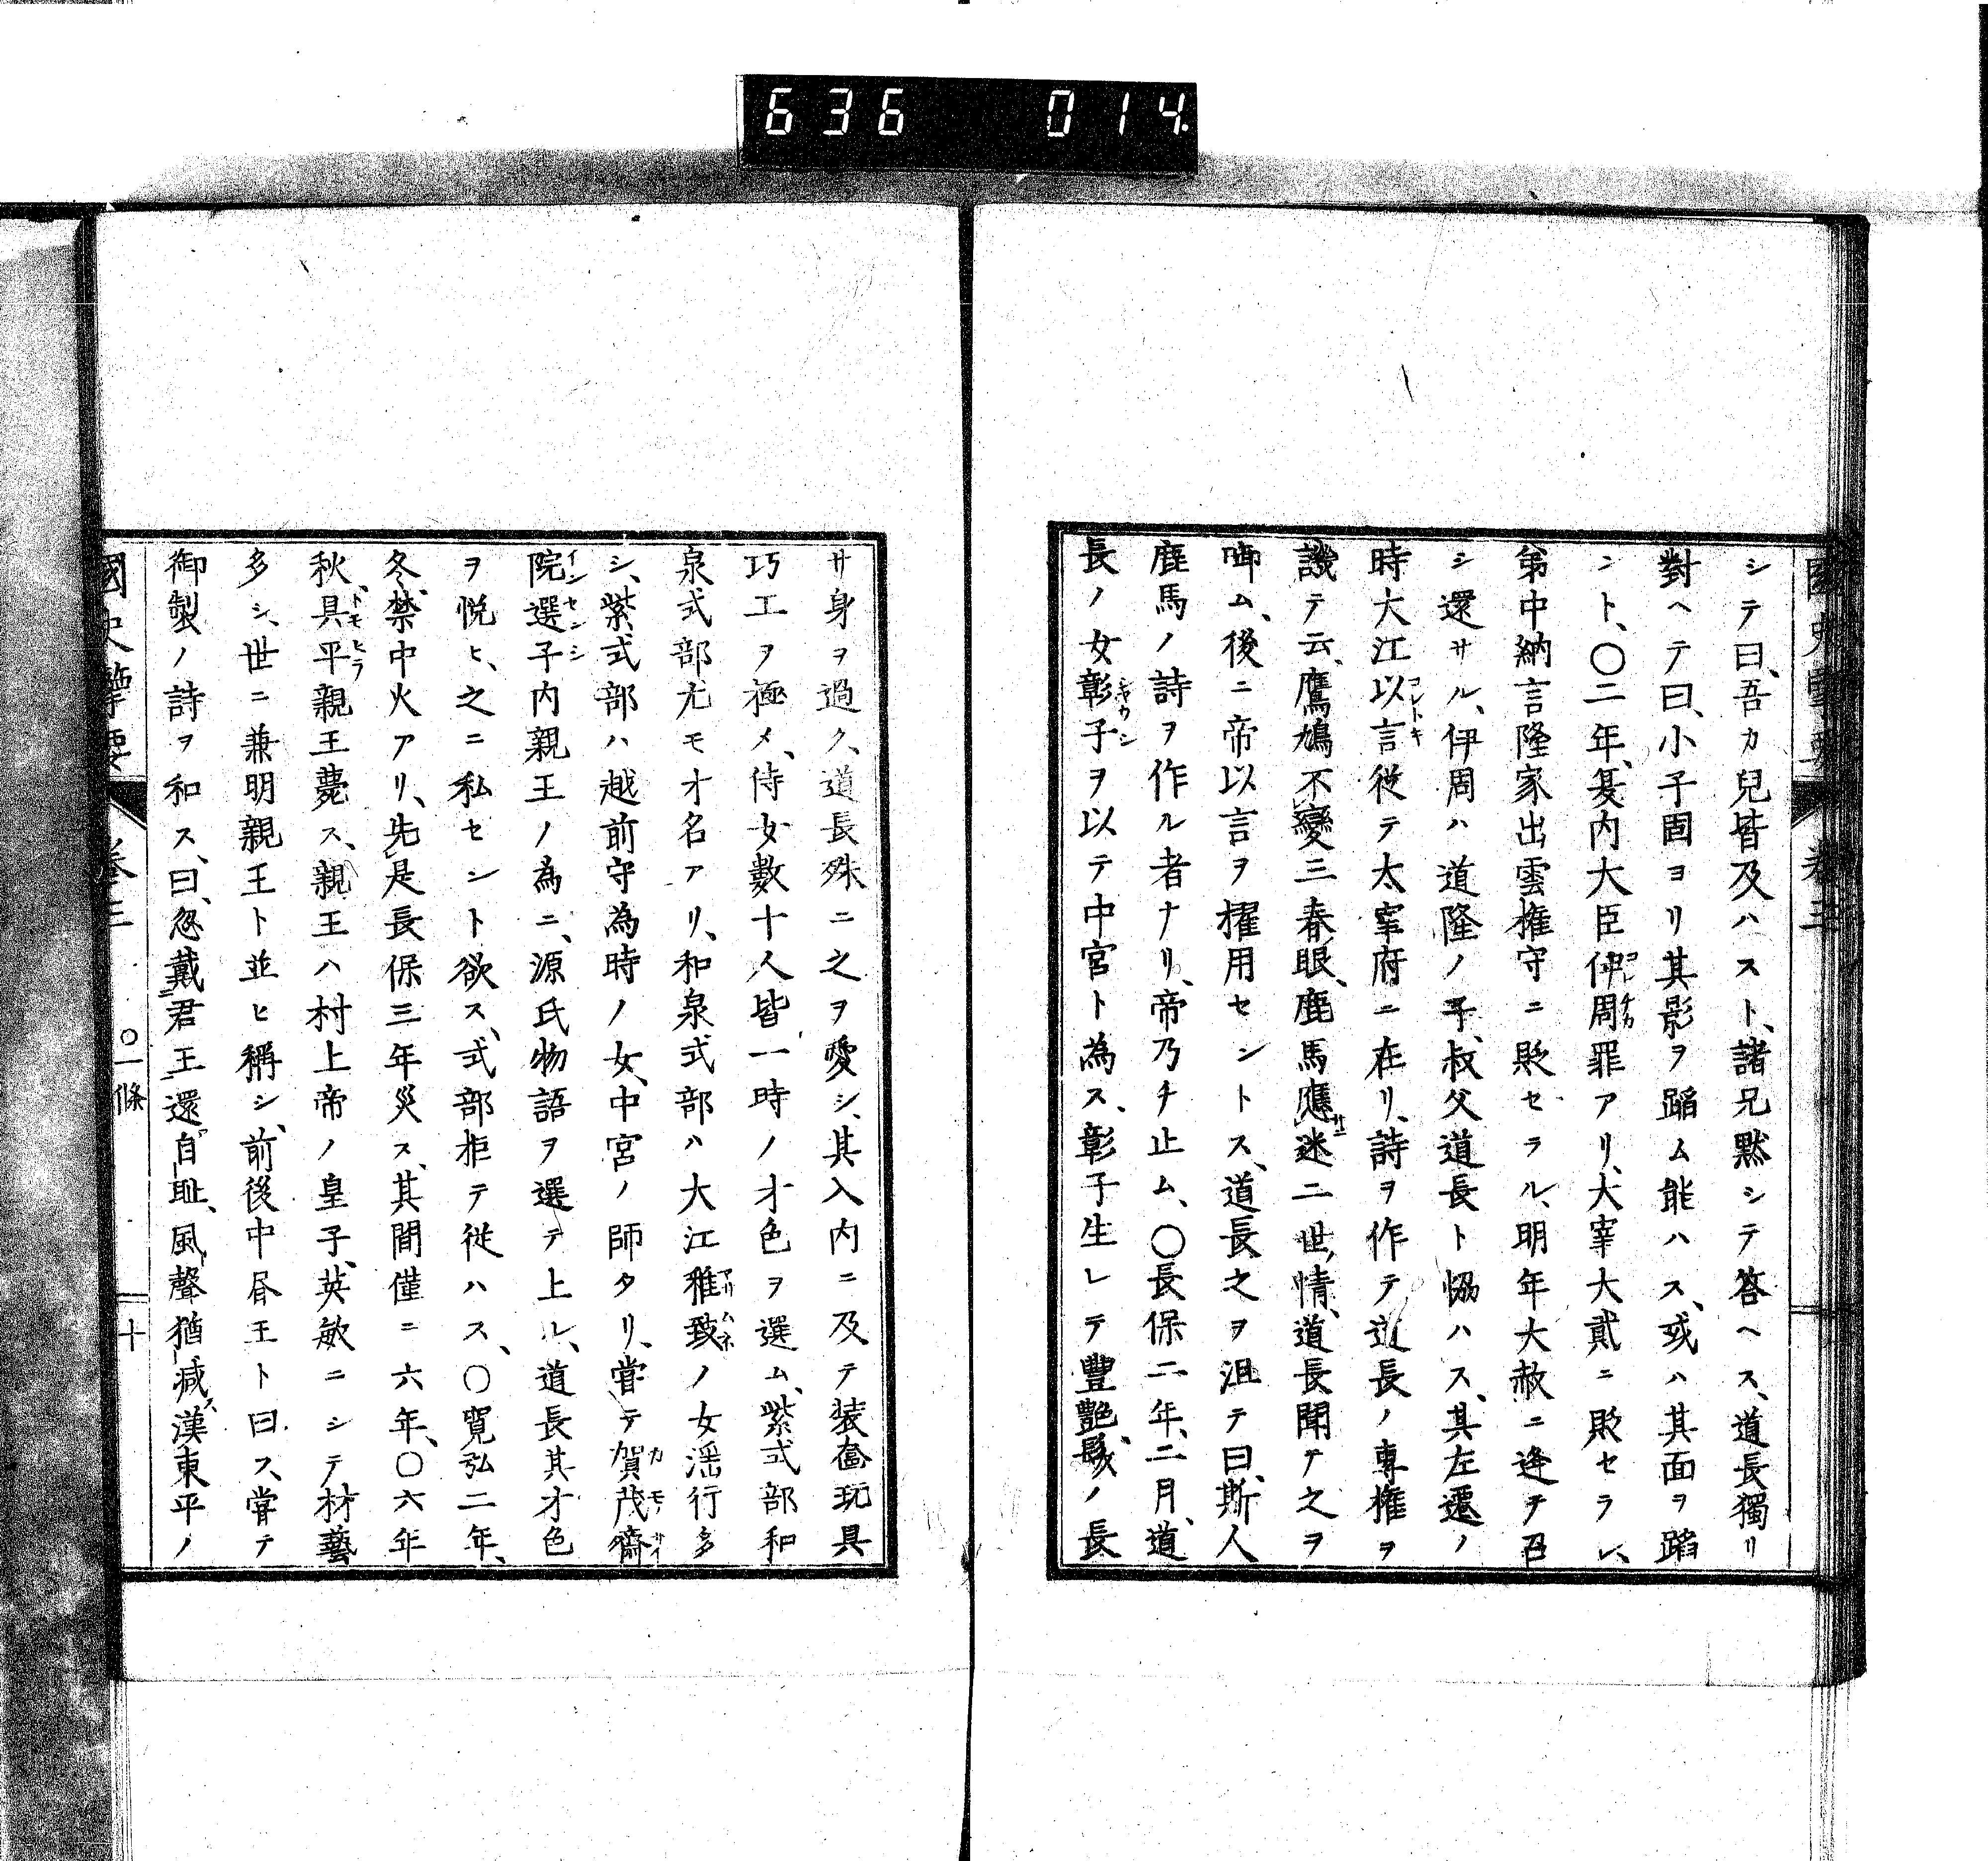 636 014
シテ曰、吾カ兒皆及ハスト、諸兄黙シテ答ヘス、道長獨リ
對ヘテ曰、小子固ヨリ其影ヲ蹈ム能ハス、或ハ其面ヲ蹈
ント、〇二年、夏内大臣伊周罪アリ、大宰大貳ニ貶セラレ、
第中納言隆家出雲権守ニ貶セラル、明年大赦ニ逢テ召
シ還サル、伊周ハ道隆ノ子、叔父道長ト恊ハス、其左遷ノ
時大江以言從テ太宰府ニ在リ、詩ヲ作テ道長ノ専権ヲ
譏テ云、鷹鳩不變三春眼、鹿馬應迷二世情、道長聞テ之ヲ
啣ム、後ニ帝以言ヲ擢用セントス、道長之ヲ沮テ曰、斯人
鹿馬ノ詩ヲ作ル者ナリ、帝乃チ止ム、〇長保二年、二月、道
長ノ女彰子ヲ以テ中宮ト為ス、彰子生レテ豐艶、髮ノ長
サ身ヲ過ク、道長殊ニ之ヲ愛シ、其入内ニ及テ装奩玩具
巧工ヲ極メ、侍女數十人皆一時ノ才色ヲ選ム、紫式部和
泉式部尤モ才名アリ、和泉式部ハ大江雅致ノ女淫行多
シ、紫式部ハ越前守為時ノ女、中宮ノ師タリ、甞テ賀茂齋
院選子内親王ノ為ニ、源氏物語ヲ選テ上ル、道長其才色
ヲ悦ヒ、之ニ私セント欲ス、式部拒テ從ハス、〇寛弘二年、
冬、禁中火アリ、先是長保三年災ス、其間僅ニ六年、〇六年
秋、具平親王薨ス、親王ハ村上帝ノ皇子、英敏ニシテ、材藝
多シ、世ニ兼明親王ト並ヒ稱シ、前後中㫺王ト曰ス、甞テ
御製ノ詩ヲ和ス、曰、忽戴君王還自耻、風聲猶減漢東平ノ
國史擥要 卷三 〇一條 十